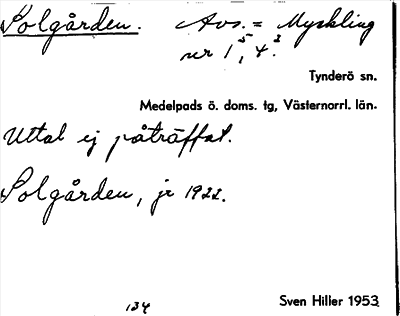 Solgården. Avs. = Myckling
nr 1⁵, 4³.
Tynderö sn.
Medelpads ö. doms. tg, Västernorrl. län.
Uttal ej påträffat.
Solgården, jr 1922.
134
Sven Hiller 1953.